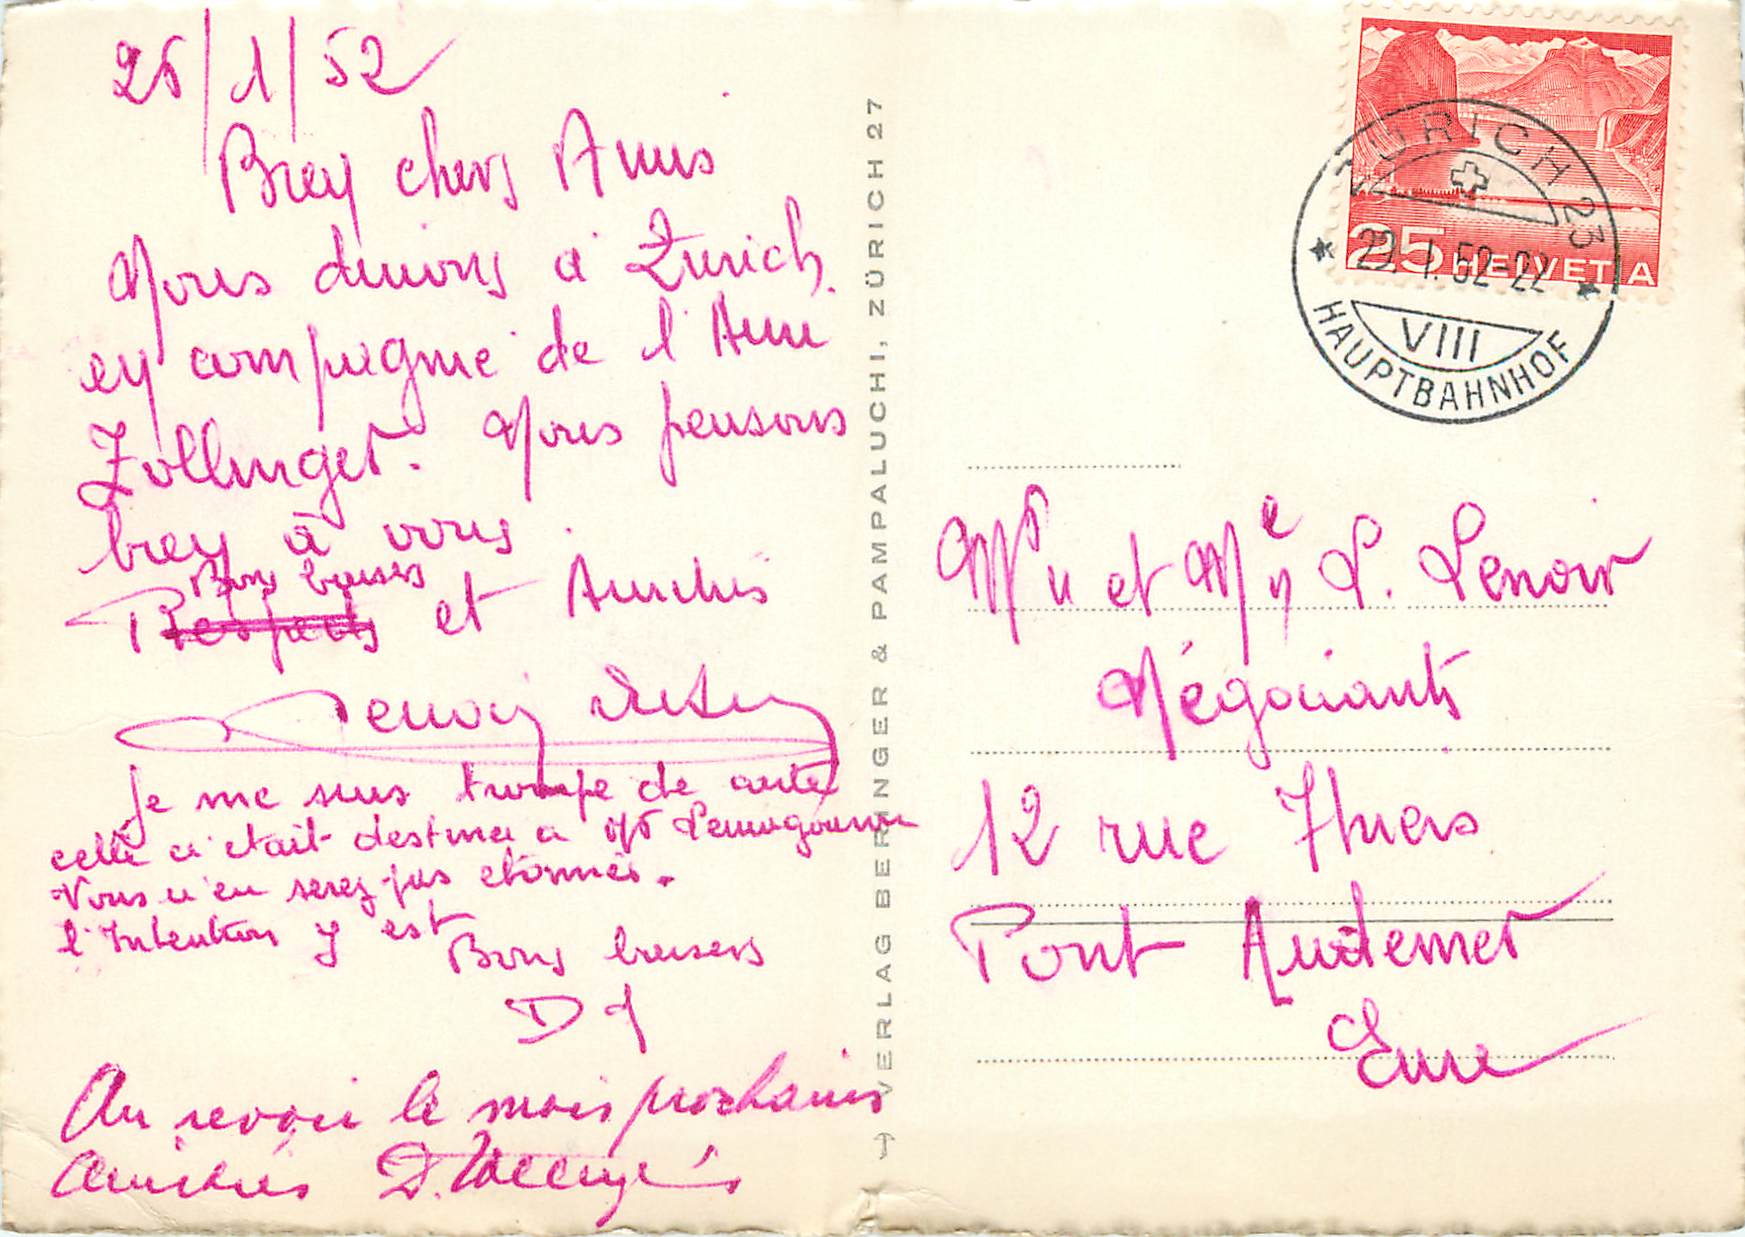 26/1/52
Bien chers Amis
Nous dinons à Zurich
en compagnie de l'Ami
Zollinger. Nous pensons
bien à vous.
Bons baisers
Respects et Amitiés
Je me suis trompé de carte
celle ci était destinée a Mr
Vous n'en serez pas étonnés.
l'Intention y est
Bons baisers
D J
Au revoir le mois prochain
Amitiés D.
VERLAG BERINGER & PAMPALUCHI, ZÜRICH 27
25 HELVETIA
ZÜRICH 23
VIII
HAUPTBAHNHOF
Mr et Me L. Lenoir
Négociants
12 rue Thiers
Pont Audemer
Eure